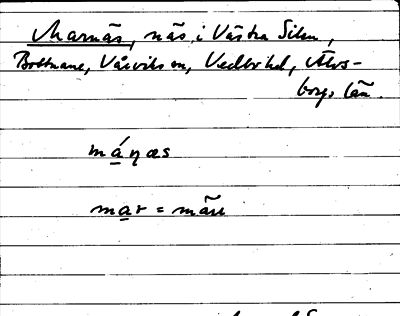 Marnäs, näs i Västra Silen,
Bottnane, Vårviks sn, Vedbo hd, Älvs-
borgs län.
máŋæs
mar = märr